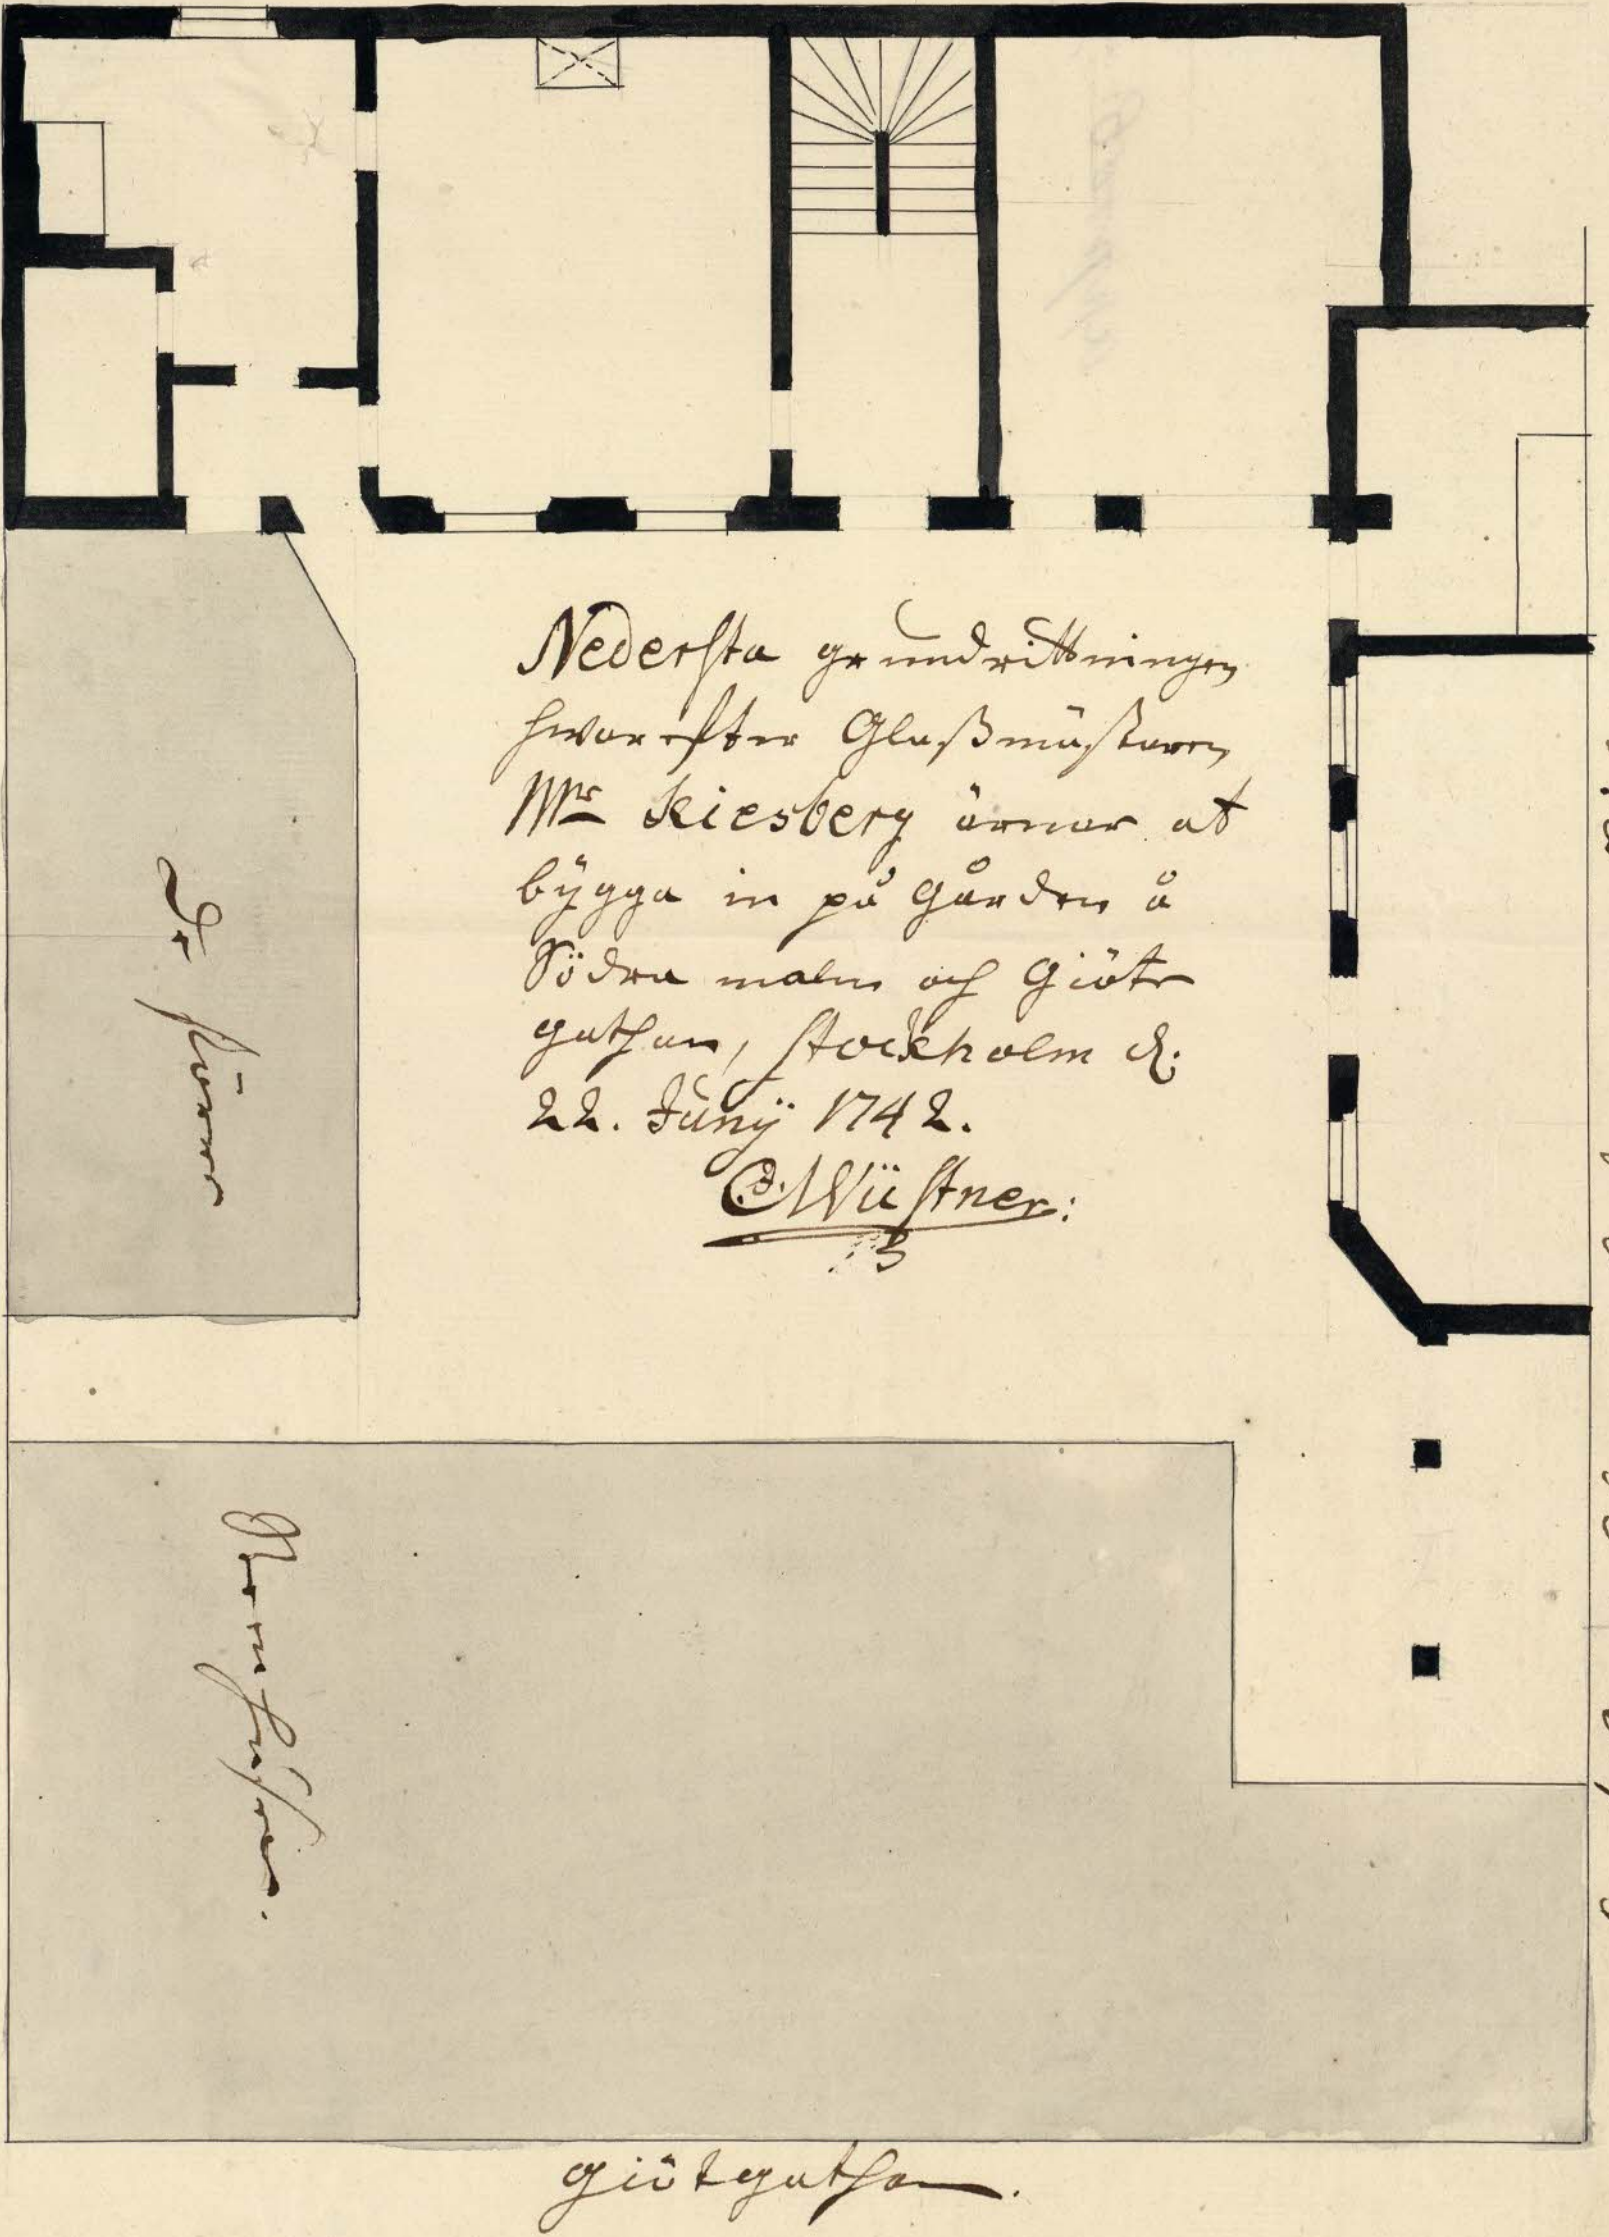 Nedersta grundrittningen
hwarefter Glaßmästaren
Mr Kiesberg ärnar at
bÿgga in på Gården å
Södra malm och Giöte
gathan, Stockholm d.
22. Junÿ 1742.
C:Wüstner:
Giötgathan.